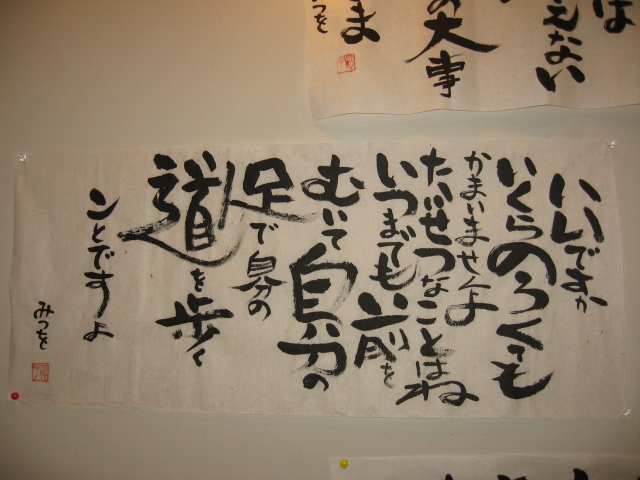 いいですか
いくらのろくても
かまいませんよ
たいせつなことはね
いつまでも前を
むいて自分の
足で自分の
道を歩く
ことですよ
みつを
は
えない
の大事
ま
みつを